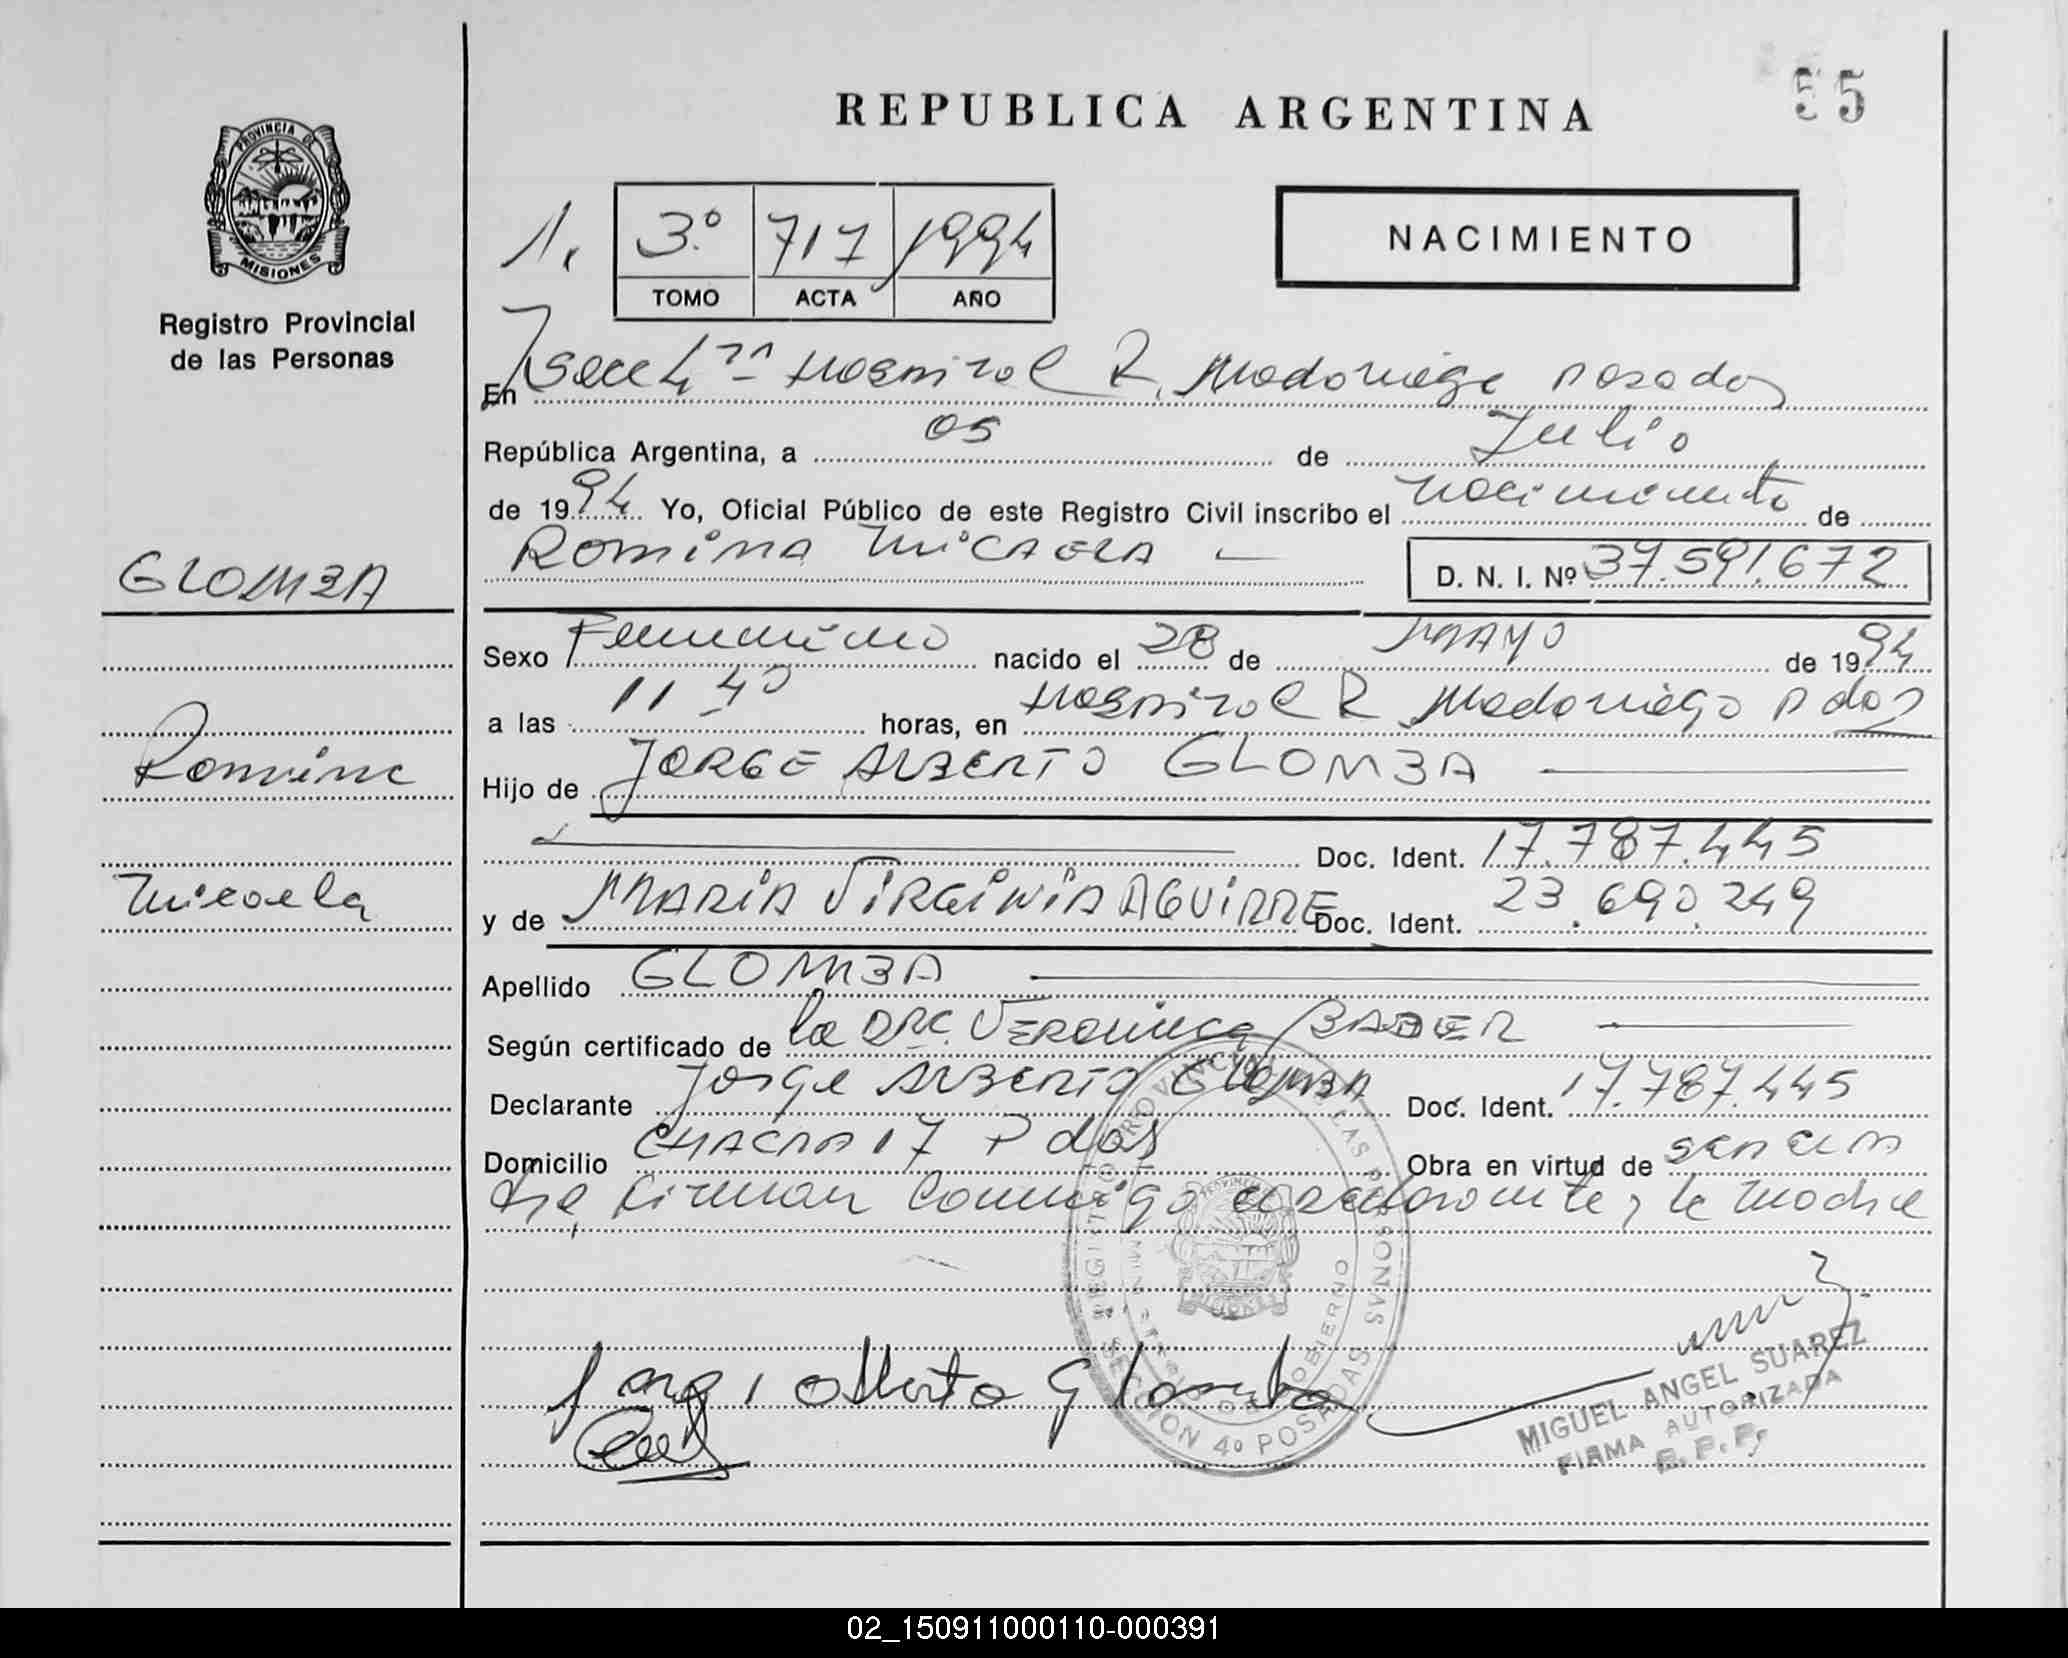 REPUBLICA ARGENTINA
55
PROVINCIA DE
MISIONES
Registro Provincial
de las Personas
1.
3º 717 1994
TOMO ACTA AÑO
NACIMIENTO
En Secc 4ta Hospital R. Madariaga Posadas
República Argentina, a 05 de Julio
de 1994 Yo, Oficial Público de este Registro Civil inscribo el nacimiento de
ROMINA MICAELA — D. N. I. Nº 37.591.672
GLOMBA
Romina
Micaela
Sexo Femenino nacido el 28 de MAYO de 1994
a las 11 40 horas, en Hospital R Madariaga Pdas
Hijo de JORGE ALBERTO GLOMBA
Doc. Ident. 17.787.445
y de MARIA VIRGINIA AGUIRRE Doc. Ident. 23.690.249
Apellido GLOMBA
Según certificado de la DRA. VERONICA BADER
Declarante Jorge ALBERTO GLOMBA Doc. Ident. 17.787.445
Domicilio CHACRA 17 Pdas Obra en virtud de ser el pa
dre, Firman conmigo el declarante y la madre
REGISTRO PROVINCIAL DE LAS PERSONAS
MINISTERIO DE GOBIERNO
SECCION 4º POSADAS
Jorge Alberto Glomba
MIGUEL ANGEL SUAREZ
FIRMA AUTORIZADA
R. P. P.
02_150911000110-000391